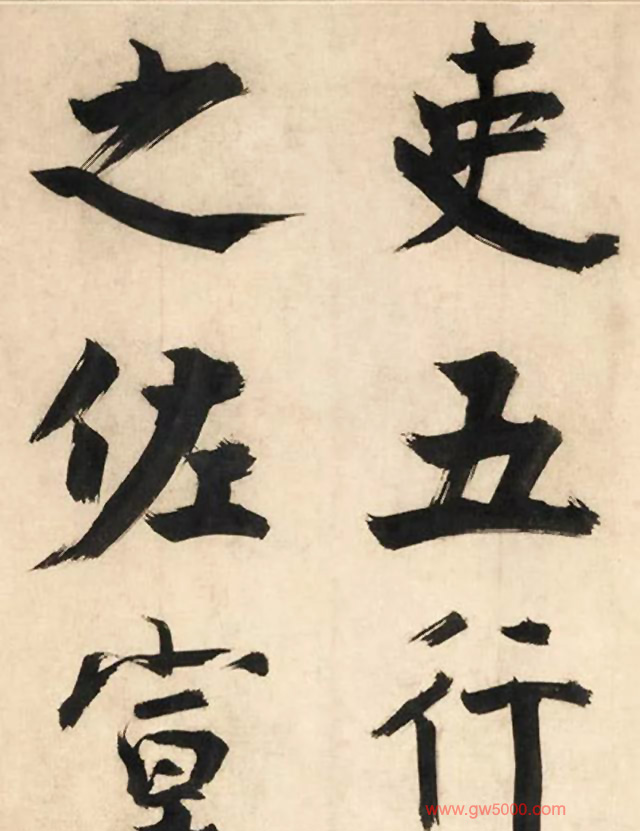 吏五行
之佐宣
www.gw5000.com